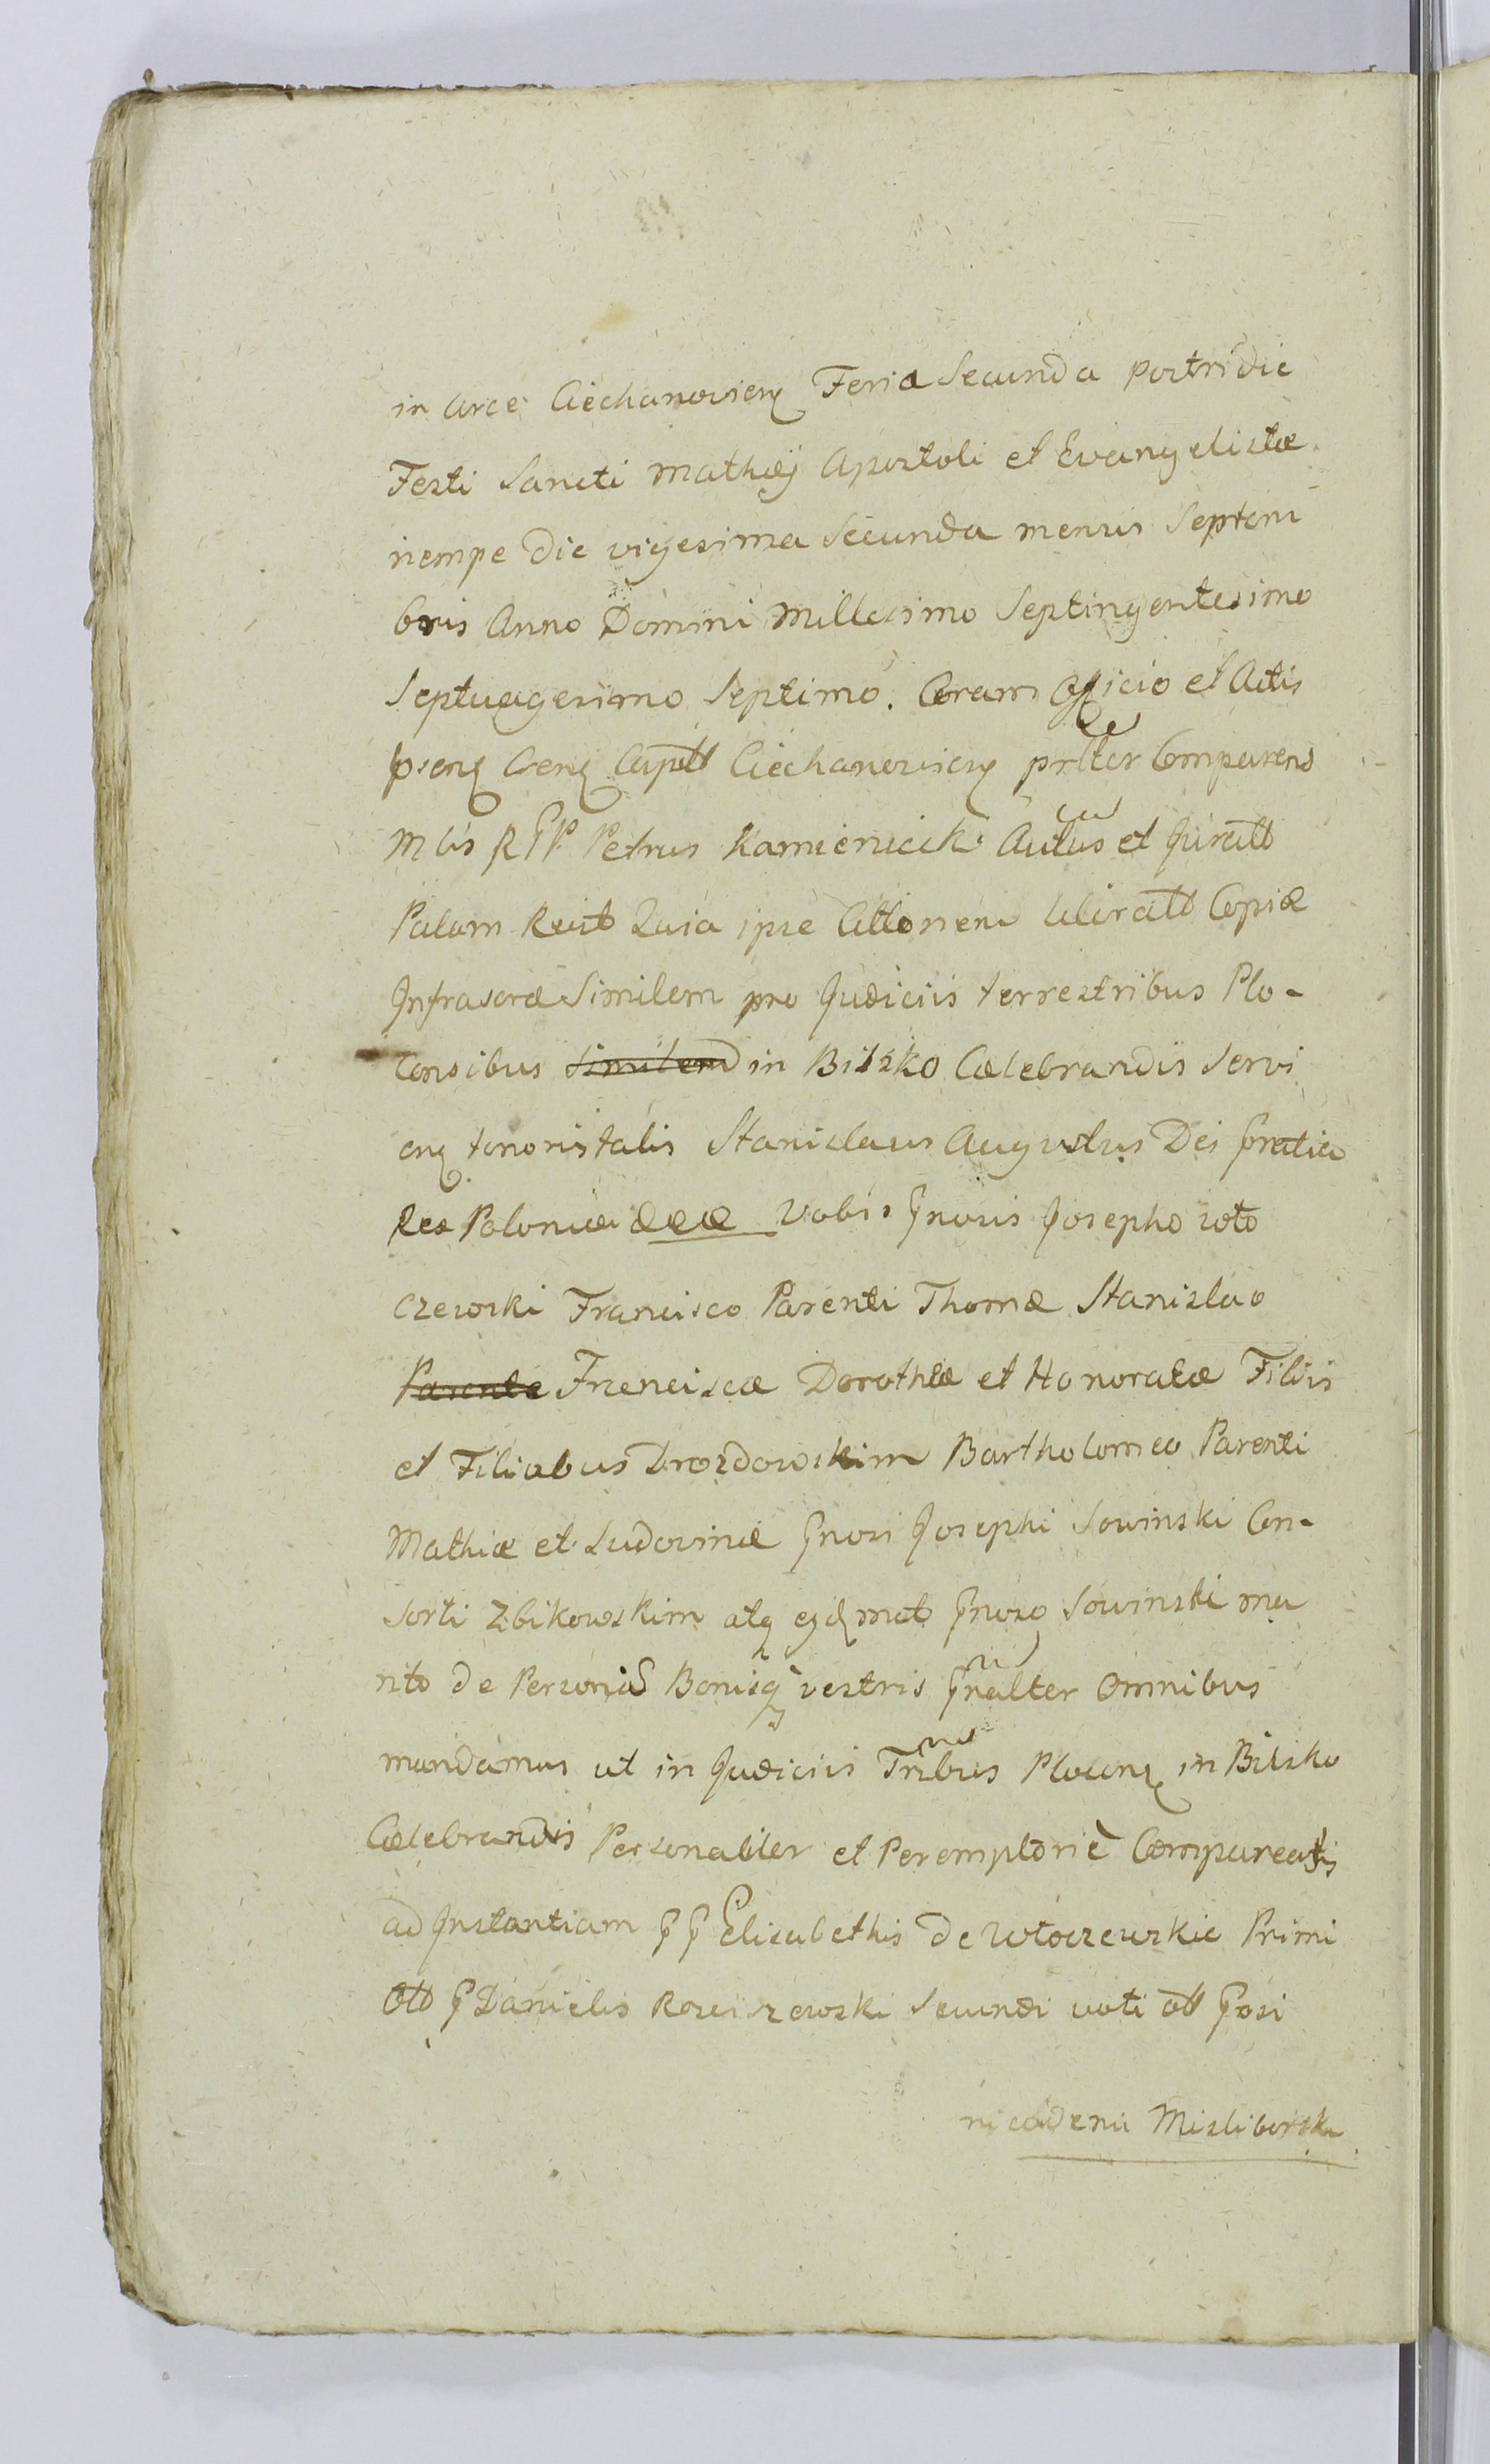 in Arce Ciechanovien Feria Secunda postridie
Festi Sancti Mathæj Apostoli et Evangelistæ
nempe Die vigesima Secunda mensis Septem
bris Anno Domini Millesimo Septingentesimo
Septuagesimo Septimo. Coram Officio et Actis
psenq Crenq Capit Ciechanovienq prlter Comparens
Mtis RGP Petrus Kamienicki Autus et Jurat
Palam Recit Quia ipse Citonem literat Copiæ
Infrascræ Similem pro Judiciis terrestribus Plo-
censibus Similem in Bilsko Cælebrandis Servi
enq tenoris talis Stanislaus Augustus Dei Gratia
Rex Poloniæ &&& Vobis Gnosis Josepho Wło
czewski Francisco Parenti Thomæ Stanislao
Parente Francisca Dorothæ et Honoratæ Filiis
et Filiabus Drozdowskim Bartholomeo Parenti
Mathiæ et Ludovinæ Gnosi Josephi Sowinski Con-
sorti Zbikowskim atq ejdmet Gnoso Sowinski ma
rito de Personis Bonisq vestris Gnalter Omnibus
mandamus ut in Judiciis Tribus Plocenq in Bilsko
Cælebrandis Personaliter et Peremptorie Compareatis
ad Instantiam G G Elisabethis de Włoczewskie Primi
Ott G Danielis Rosciszewski Secundi voti ott Gosi
nicodemi Misliborski